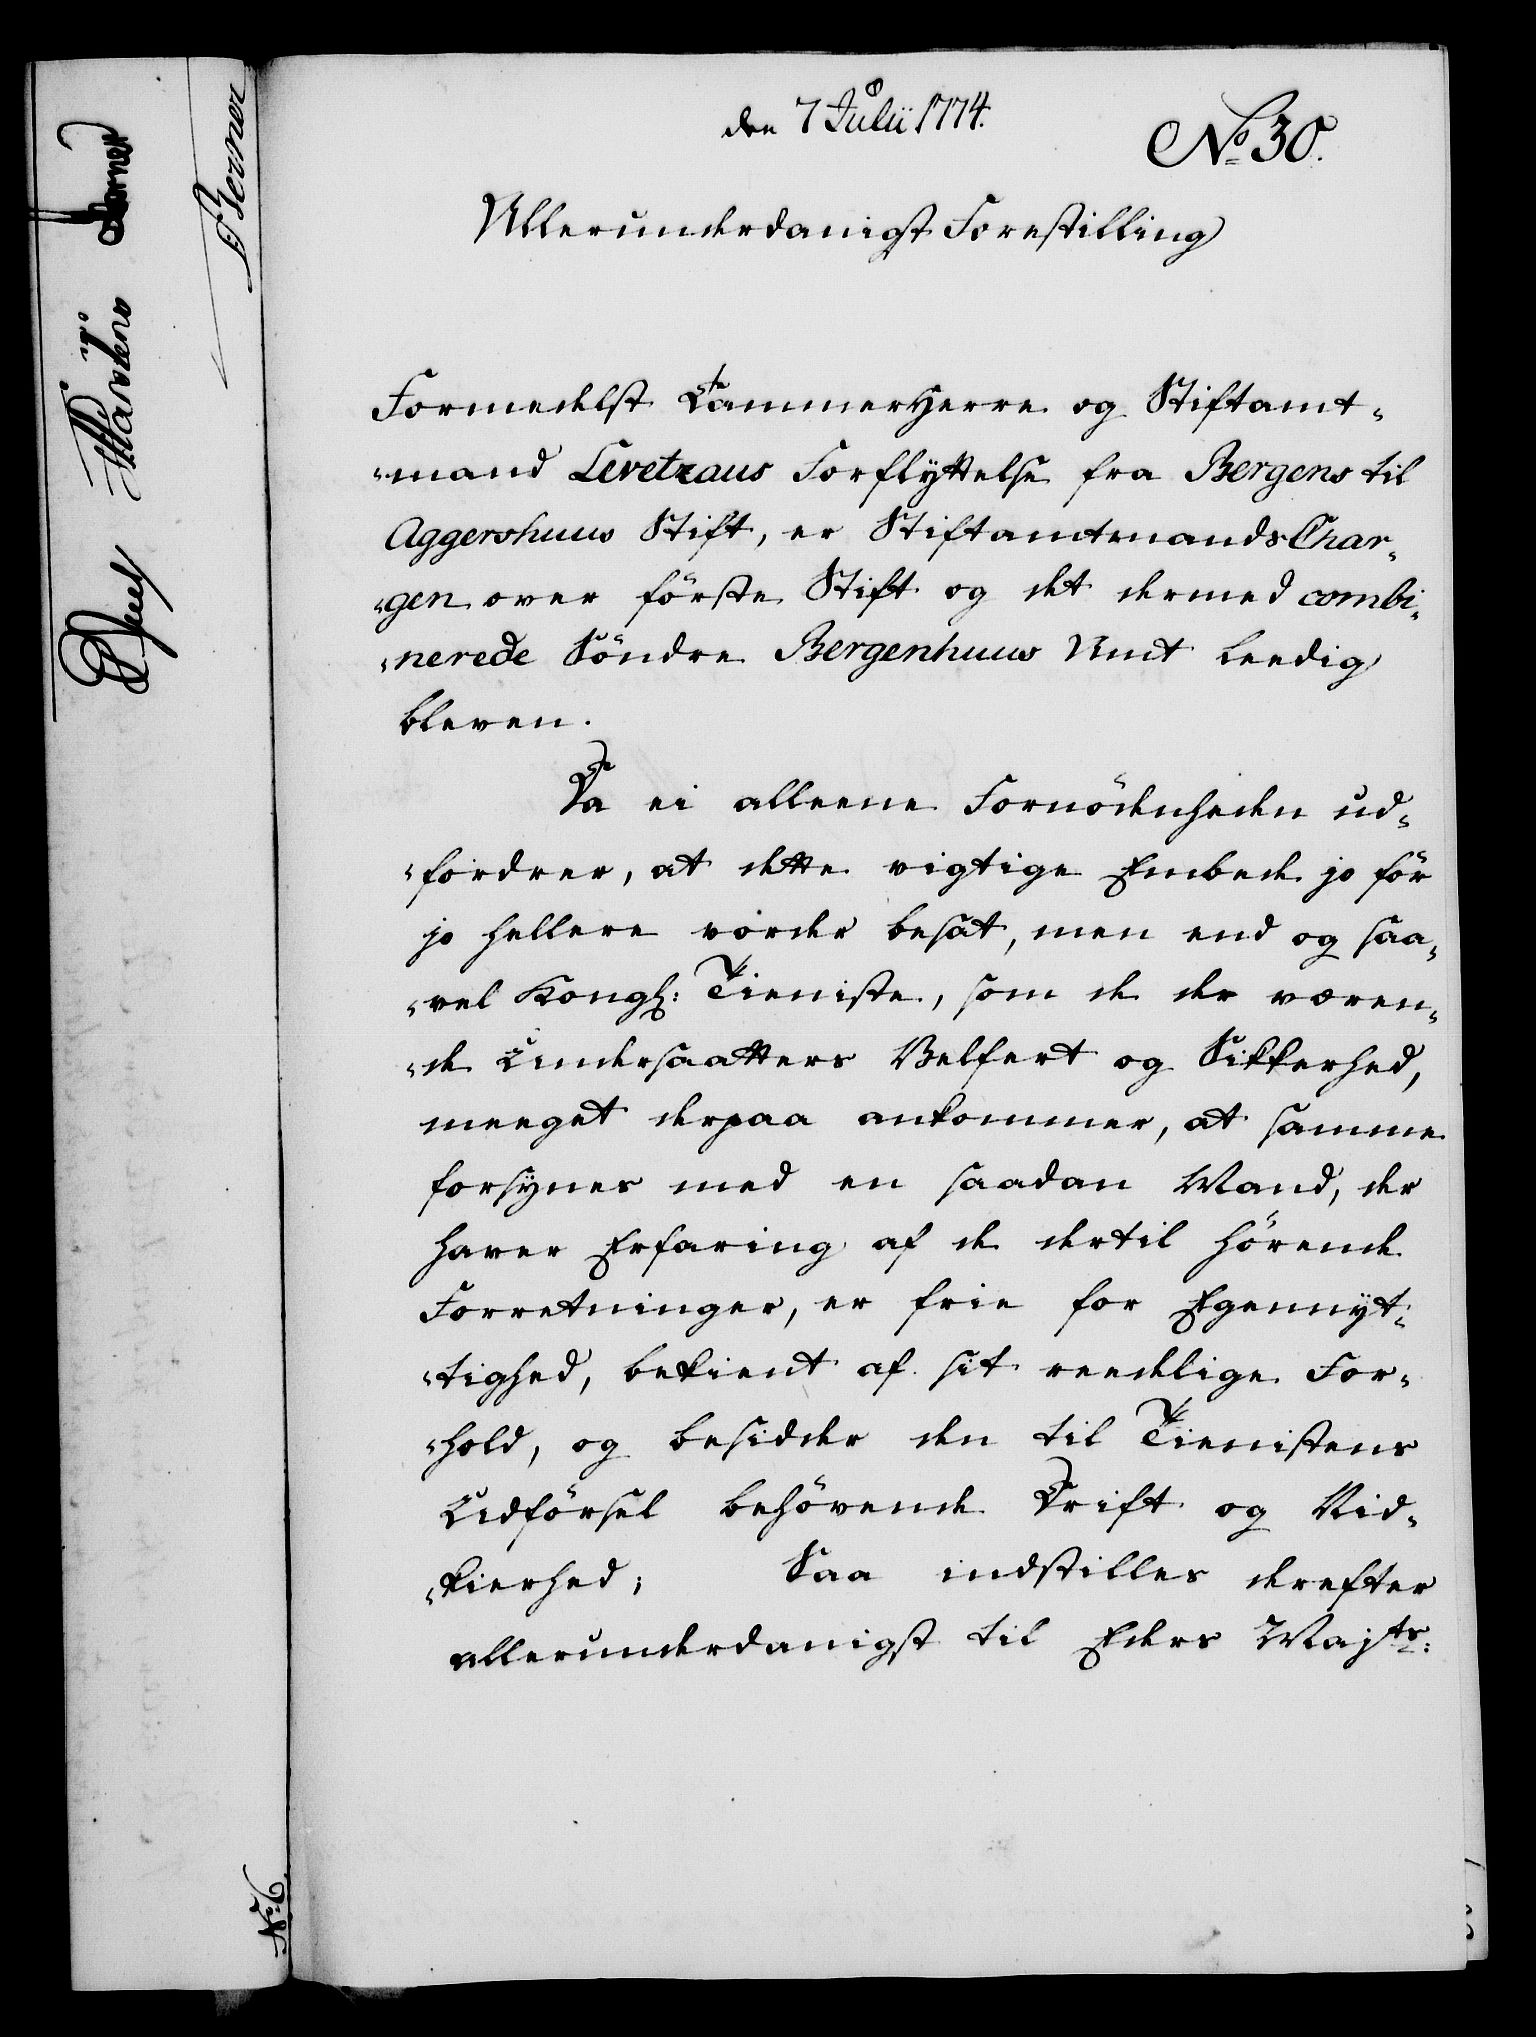 den 7 Julii 1774.
No 30.
Allerunderdanigst Forestilling
Formedelst Cammerherre og Stiftamt-
-mand Levetzaus Forflyttelse fra Bergens til
Aggershuus Stift, er Stiftamtmands Char-
-gen over förste Stift og det dermed combi-
-nerede Söndre Bergenhuus Amt leedig
bleven.
Da ei alleene Fornödenheden ud-
-fordrer, at dette vigtige Embede jo för
jo hellere vorder besat, men end og saa-
-vel Kongl: Tieniste, som de der væren-
-de Undersaatters Velfert og Sikkerhed,
meeget derpaa ankommer, at samme
forsynes med en saadan Mand, der
haver Erfaring af de dertil hörende
Forretninger, er frie for Egennyt-
-tighed, bekient af sit reedelige For-
-hold, og besidder den til Tienistens
Udförsel behövende Drift og Nid-
-kierhed; Saa indstilles derefter
allerunderdanigst til Eders Majts:
Martens
Berner
No 6.